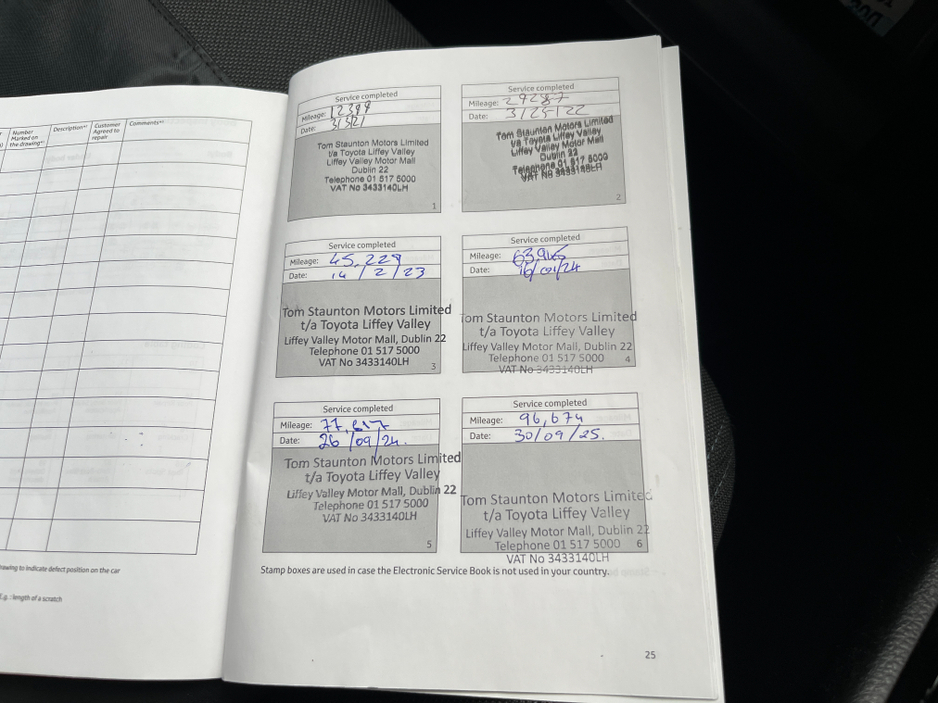 Number Marked on the drawing*¹
Description*²
Customer Agreed to repair
Comments*³
Service completed
Mileage:
Date: 3/3/21
Tom Staunton Motors Limited
t/a Toyota Liffey Valley
Liffey Valley Motor Mall
Dublin 22
Telephone 01 517 5000
VAT No 3433140LH
1
Service completed
Mileage: 29287
Date:
Tom Staunton Motors Limited
t/a Toyota Liffey Valley
Liffey Valley Motor Mall
Dublin 22
Telephone 01 517 5000
VAT No 3433140LH
2
Service completed
Mileage: 45,229
Date: 14/2/23
Tom Staunton Motors Limited
t/a Toyota Liffey Valley
Liffey Valley Motor Mall, Dublin 22
Telephone 01 517 5000
VAT No 3433140LH
3
Service completed
Mileage:
Date: 16/01/24
Tom Staunton Motors Limited
t/a Toyota Liffey Valley
Liffey Valley Motor Mall, Dublin 22
Telephone 01 517 5000
VAT No 3433140LH
4
Service completed
Mileage: 77,617
Date: 26/09/24.
Tom Staunton Motors Limited
t/a Toyota Liffey Valley
Liffey Valley Motor Mall, Dublin 22
Telephone 01 517 5000
VAT No 3433140LH
5
Service completed
Mileage: 96,674
Date: 30/09/25.
Tom Staunton Motors Limited
t/a Toyota Liffey Valley
Liffey Valley Motor Mall, Dublin 22
Telephone 01 517 5000
VAT No 3433140LH
6
Stamp boxes are used in case the Electronic Service Book is not used in your country.
drawing to indicate defect position on the car
E.g. : length of a scratch
25